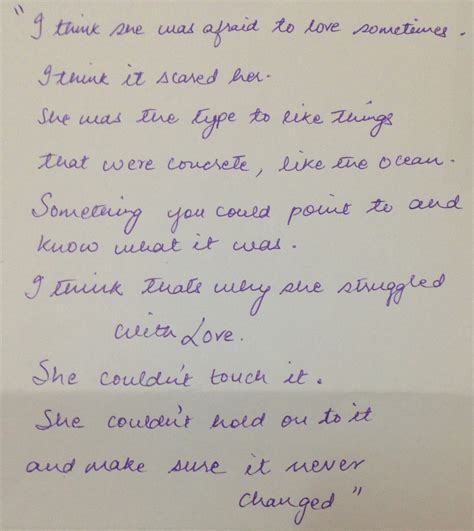 "I think she was afraid to love sometimes.
I think it scared her.
She was the type to like things
that were concrete, like the ocean.
Something you could point to and
know what it was.
I think thats why she struggled
with Love.
She couldn't touch it.
She couldn't hold on to it
and make sure it never
changed"